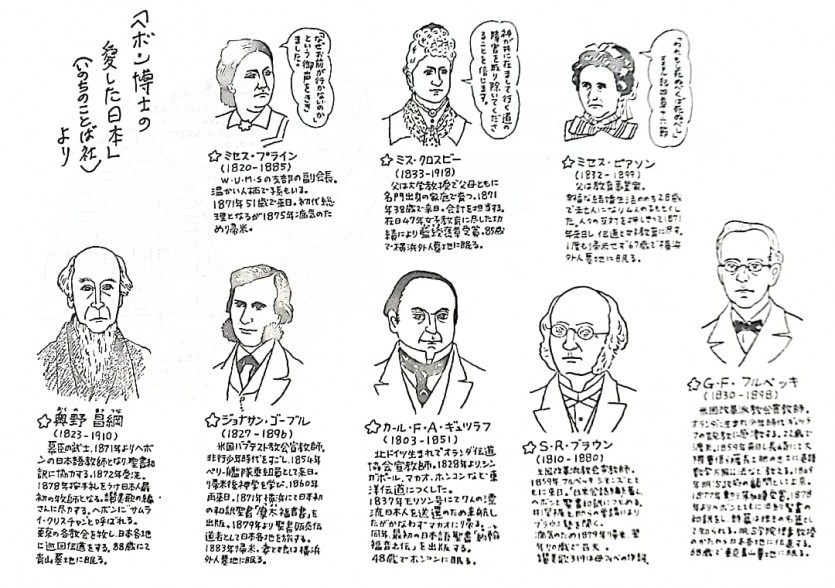 「ヘボン博士の
愛した日本」
(いのちのことば社)
より
「なぜお前が行かないのか」
という御声をきき
ました。
神が共に在まして行く道の
障害を取り除いてくださ
ることを信じます。
☆ミセス・プライン
(1820-1885)
W・U・M・Sの支部の副会長。
温かい人柄で孫もいる。
1871年51歳で来日。初代総
理となるが1875年病気のた
め帰米。
☆ミス・クロスビー
(1833-1918)
父は大学教授で父母ともに
名門出身の家庭で育つ。1871
年38歳で来日。会計を担当する。
在日47年女子教育に尽した功
績により藍綬褒章受賞。85歳
で横浜外人墓地に眠る。
☆ミセス・ピアソン
(1832-1899)
父は教育事業家。
で未亡人になり4人の子も亡くし
た。人々の反対を押しきって1871
年来日し伝道と女子教育に尽す。
1度も帰米せず67歳で横浜
外人墓地に眠る。
おくの まさつな
☆奥野 昌綱
(1823-1910)
幕臣の武士。1871年よりヘボ
ンの日本語教師となり聖書和
訳に協力する。1872年受洗。
1878年按手礼をうけ日本人最
初の牧師となる。讃美歌の編
さんに尽力する。ヘボンに"サムラ
イ・クリスチャン"と呼ばれる。
東京の各教会を牧し、日本各地
に巡回伝道をする。88歳にて
青山墓地に眠る。
☆ジョナサン・ゴーブル
(1827-1896)
米国バプテスト教会宣教師。
非行少年時代をすごし、1854年
ペリー艦隊乗組員として来日。
帰米後神学を学び、1860年
再来日。1871年横浜にて日本初
の和訳聖書「摩太福音書」を
出版。1879年より聖書販売伝
道者として日本各地を旅する。
1883年帰米。妻と娘は横浜
外人墓地に眠る。
☆カール・F・A・ギュツラフ
(1803-1851)
北ドイツ生まれでオランダ伝道
協会宣教師。1828年よりシン
ガポール、マカオ、ホンコンなどで東
洋伝道につくした。
1837年モリソン号にて7人の漂
流日本人を送還のため来航し
たがかなわずマカオに帰る。
同年、最初の日本語聖書「約翰
福音之伝」を出版する。
48歳でホンコンに眠る。
☆S・R・ブラウン
(1810-1880)
米国改革派教会宣教師。
1859年フルベッキ、シモンズとと
もに来日。
ヘボンと聖書和訳につとめる。
ブラウン塾を開く。
病気のため1879年帰米。翌
☆G・F・フルベッキ
(1830-1898)
米国改革派教会宣教師。